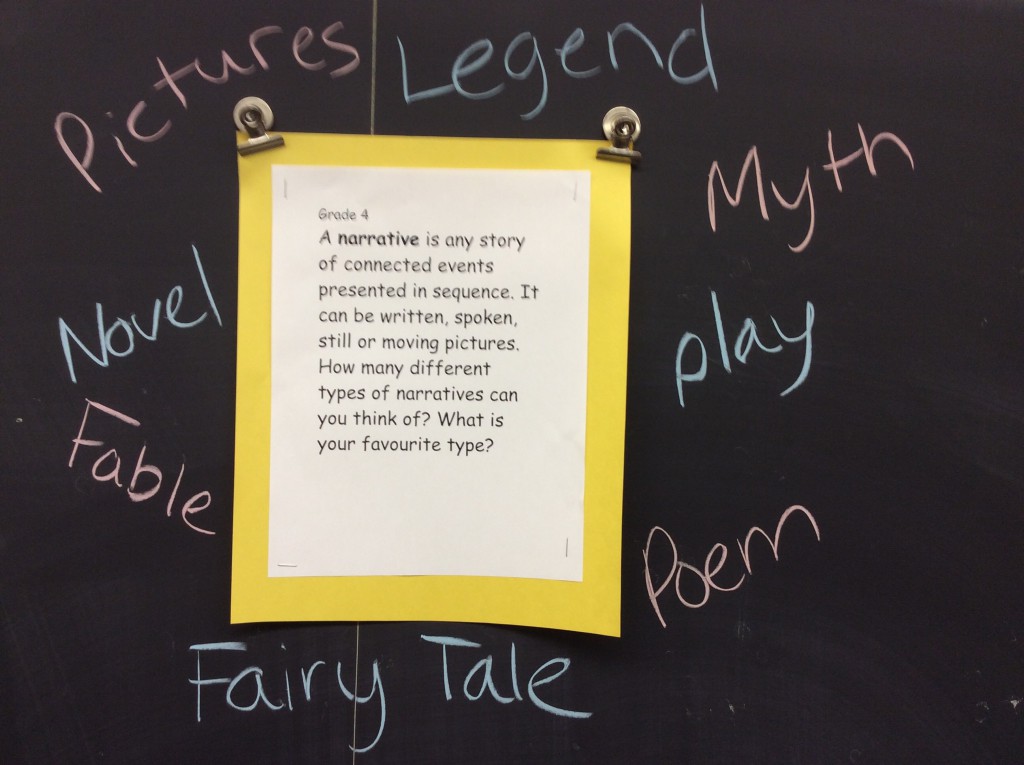 Pictures
Legend
Myth
Grade 4
A narrative is any story
of connected events
presented in sequence. It
can be written, spoken,
still or moving pictures.
How many different
types of narratives can
you think of? What is
your favourite type?
Novel
play
Fable
Poem
Fairy Tale